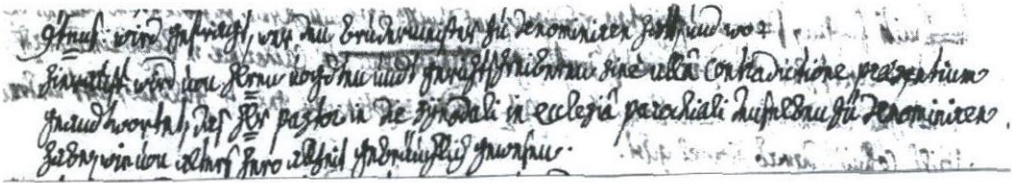 9tens: wird gefragt, wer den brudermeister zu denominiren hatt und wo?
hierauff wird von Herrn vogdten undt gerichtschreiberen sine ulla Contradictione praesentium
geandtwortet, das Hr pastor in die synodali in ecclesia parochiali denselben zu denominiren
habe, wie von alters hero allzeit gebräuchlich gewesen.